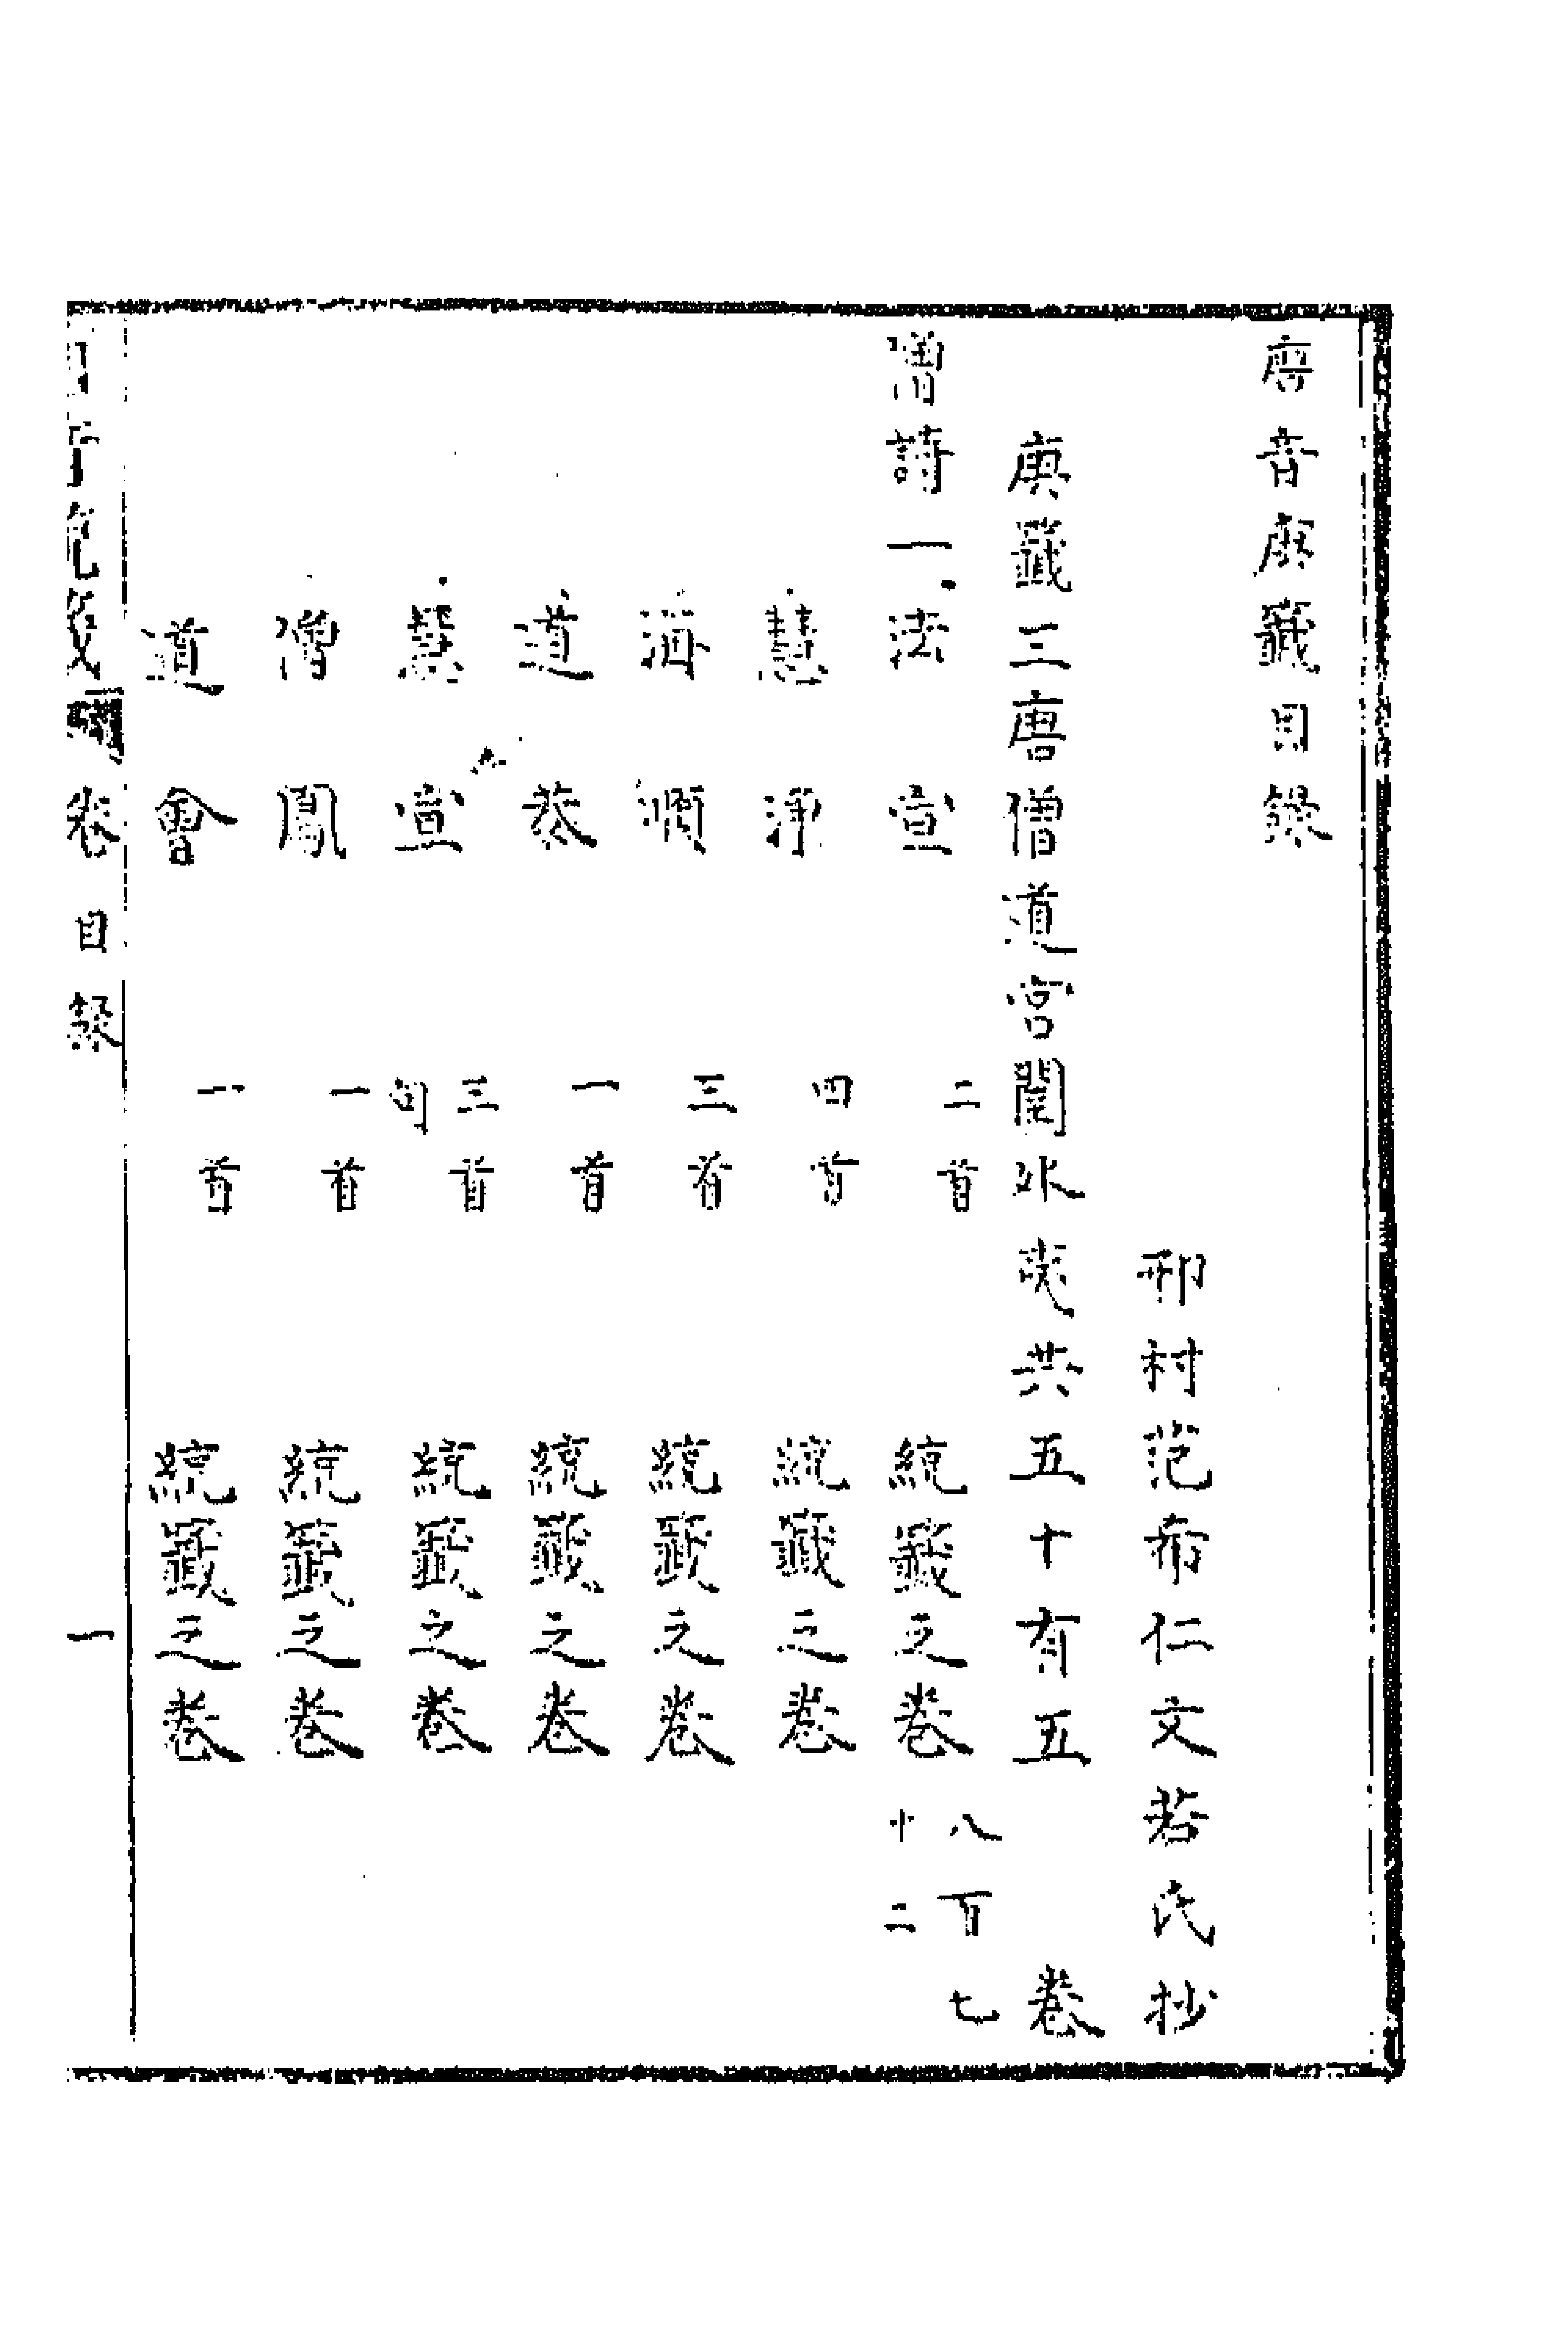 唐音庚籖目録
邗村范希仁文若氏抄
庚籖三唐僧道宮閨外夷共五十有五卷
僧詩一 法宣 二首 統籖之卷八百七十二
慧淨 四首 統籖之卷
海順 三首 統籖之卷
道恭 一首 統籖之卷
慧宣 三首句 統籖之卷
僧鳳 一首 統籖之卷
道會 一首 統籖之卷
卷目録 一